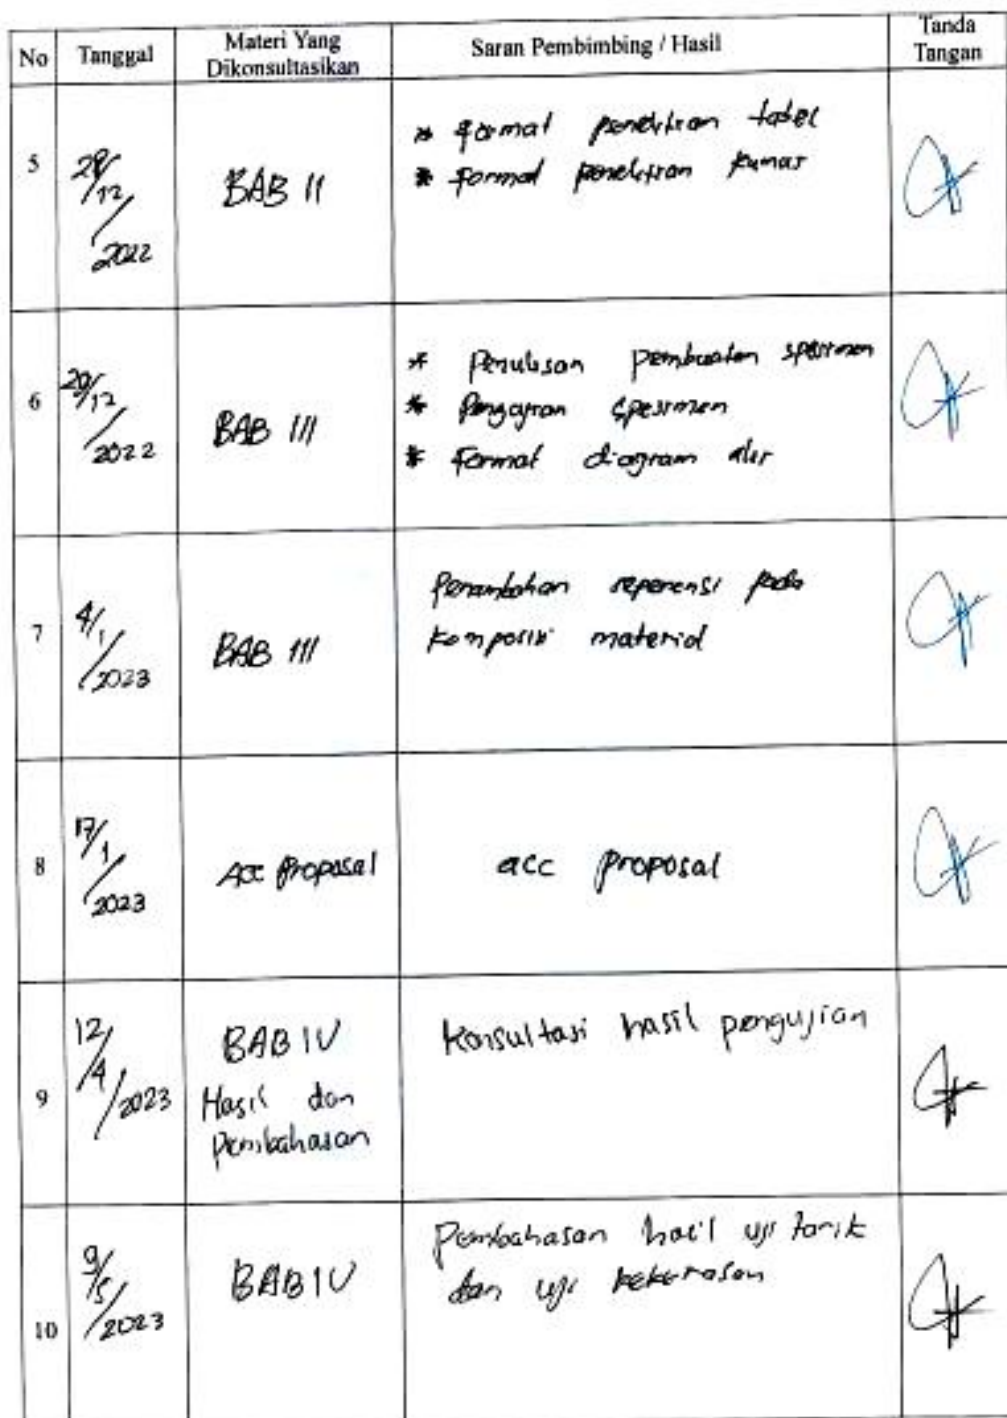 No Tanggal Materi Yang Dikonsultasikan Saran Pembimbing / Hasil Tanda Tangan
5 12/2022 BAB II
* Format penelitian tabel
* Format penelitian
6 12/2022 BAB III
* Penulisan pembuatan spesimen
* Pengujian spesimen
* Format diagram alir
7 4/1/2023 BAB III
Penambahan reperensi pada
komposisi material
8 17/1/2023 Acc proposal acc proposal
9 12/4/2023 BAB IV
Hasil dan
Pembahasan
Konsultasi hasil pengujian
10 9/5/2023 BAB IV
Pembahasan hasil uji tarik
dan uji kekerasan